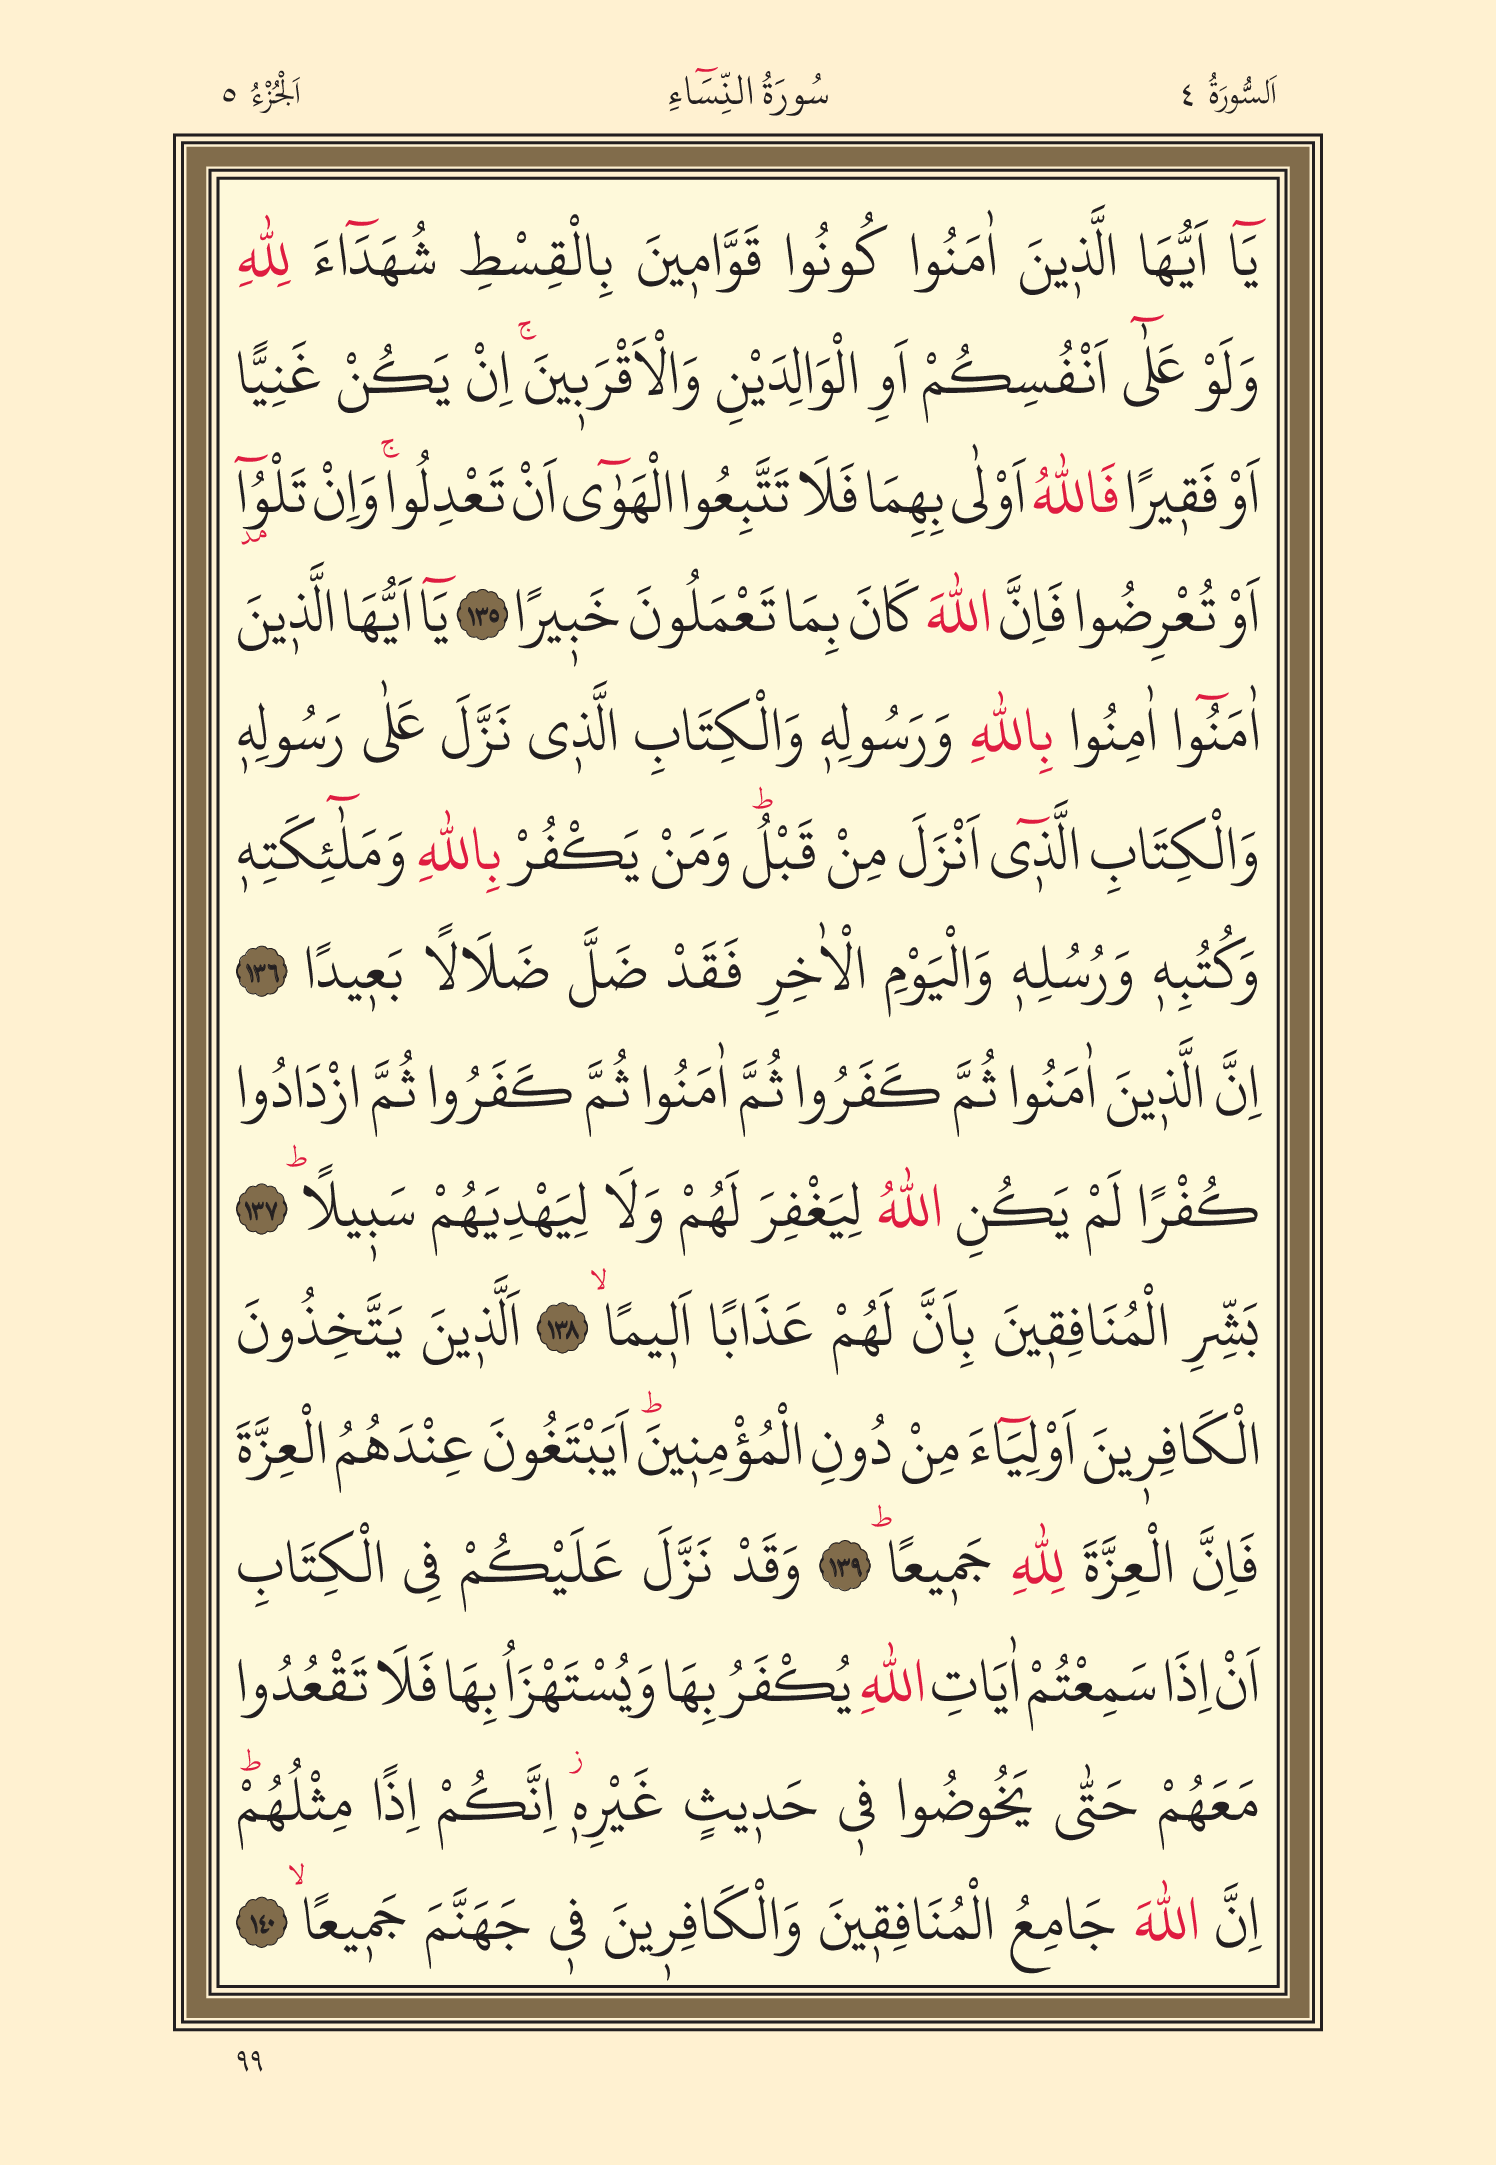 اَلسُّورَةُ ٤ سُورَةُ النِّسَٓاءِ اَلْجُزْءُ ٥
يَٓا اَيُّهَا الَّذ۪ينَ اٰمَنُوا كُونُوا قَوَّام۪ينَ بِالْقِسْطِ شُهَدَٓاءَ لِلّٰهِ
وَلَوْ عَلٰٓى اَنْفُسِكُمْ اَوِ الْوَالِدَيْنِ وَالْاَقْرَب۪ينَۚ اِنْ يَكُنْ غَنِيًّا
اَوْ فَق۪يرًا فَاللّٰهُ اَوْلٰى بِهِمَا فَلَا تَتَّبِعُوا الْهَوٰٓى اَنْ تَعْدِلُواۚ وَاِنْ تَلْوُٓ۫ا
اَوْ تُعْرِضُوا فَاِنَّ اللّٰهَ كَانَ بِمَا تَعْمَلُونَ خَب۪يرًا ﴿١٣٥﴾ يَٓا اَيُّهَا الَّذ۪ينَ
اٰمَنُٓوا اٰمِنُوا بِاللّٰهِ وَرَسُولِه۪ وَالْكِتَابِ الَّذ۪ى نَزَّلَ عَلٰى رَسُولِه۪
وَالْكِتَابِ الَّذ۪ٓى اَنْزَلَ مِنْ قَبْلُۜ وَمَنْ يَكْفُرْ بِاللّٰهِ وَمَلٰٓئِكَتِه۪
وَكُتُبِه۪ وَرُسُلِه۪ وَالْيَوْمِ الْاٰخِرِ فَقَدْ ضَلَّ ضَلَالًا بَع۪يدًا ﴿١٣٦﴾
اِنَّ الَّذ۪ينَ اٰمَنُوا ثُمَّ كَفَرُوا ثُمَّ اٰمَنُوا ثُمَّ كَفَرُوا ثُمَّ ازْدَادُوا
كُفْرًا لَمْ يَكُنِ اللّٰهُ لِيَغْفِرَ لَهُمْ وَلَا لِيَهْدِيَهُمْ سَب۪يلًاۜ ﴿١٣٧﴾
بَشِّرِ الْمُنَافِق۪ينَ بِاَنَّ لَهُمْ عَذَابًا اَل۪يمًاۙ ﴿١٣٨﴾ اَلَّذ۪ينَ يَتَّخِذُونَ
الْكَافِر۪ينَ اَوْلِيَٓاءَ مِنْ دُونِ الْمُؤْمِن۪ينَۜ اَيَبْتَغُونَ عِنْدَهُمُ الْعِزَّةَ
فَاِنَّ الْعِزَّةَ لِلّٰهِ جَم۪يعًاۜ ﴿١٣٩﴾ وَقَدْ نَزَّلَ عَلَيْكُمْ فِى الْكِتَابِ
اَنْ اِذَا سَمِعْتُمْ اٰيَاتِ اللّٰهِ يُكْفَرُ بِهَا وَيُسْتَهْزَاُ بِهَا فَلَا تَقْعُدُوا
مَعَهُمْ حَتّٰى يَخُوضُوا ف۪ى حَد۪يثٍ غَيْرِه۪ۘ اِنَّكُمْ اِذًا مِثْلُهُمْۜ
اِنَّ اللّٰهَ جَامِعُ الْمُنَافِق۪ينَ وَالْكَافِر۪ينَ ف۪ى جَهَنَّمَ جَم۪يعًاۙ ﴿١٤٠﴾
٩٩